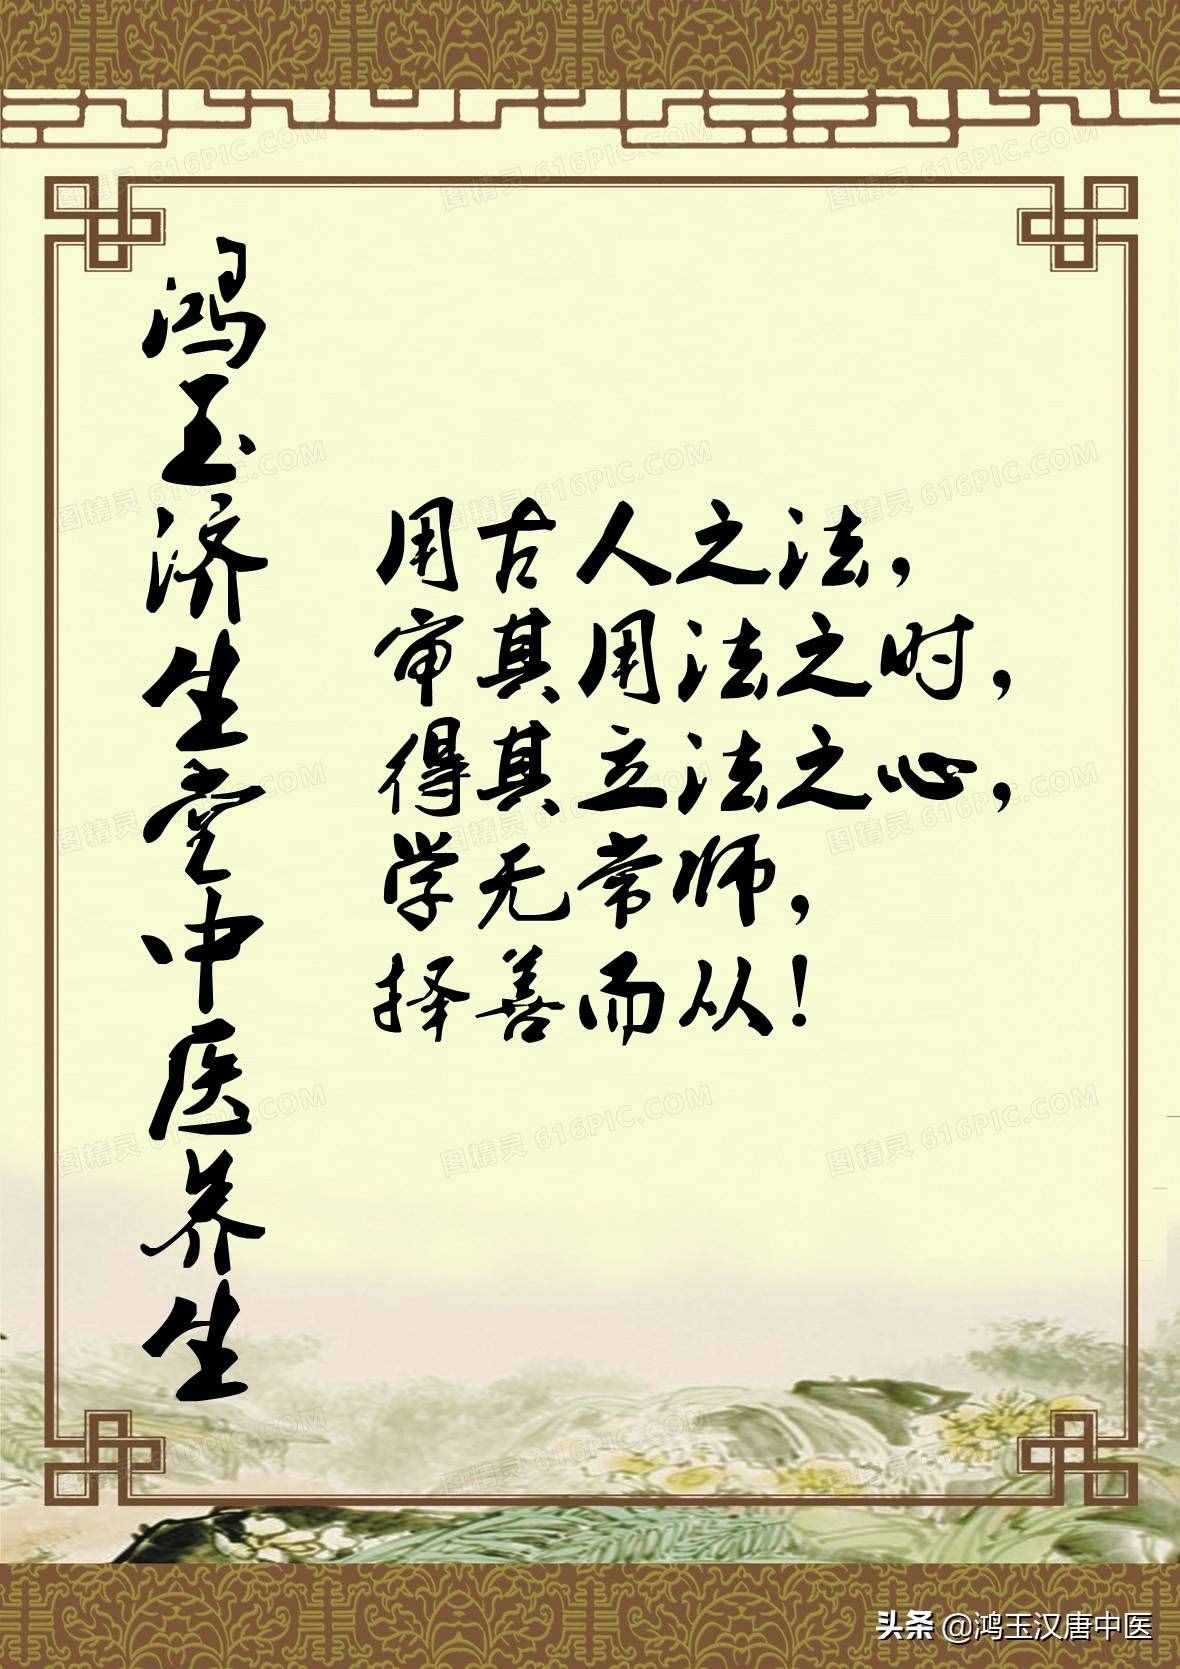 鸿玉济生堂中医养生
用古人之法，
审其用法之时，
得其立法之心，
学无常师，
择善而从！
头条 @鸿玉汉唐中医
图精灵 616PIC.COM